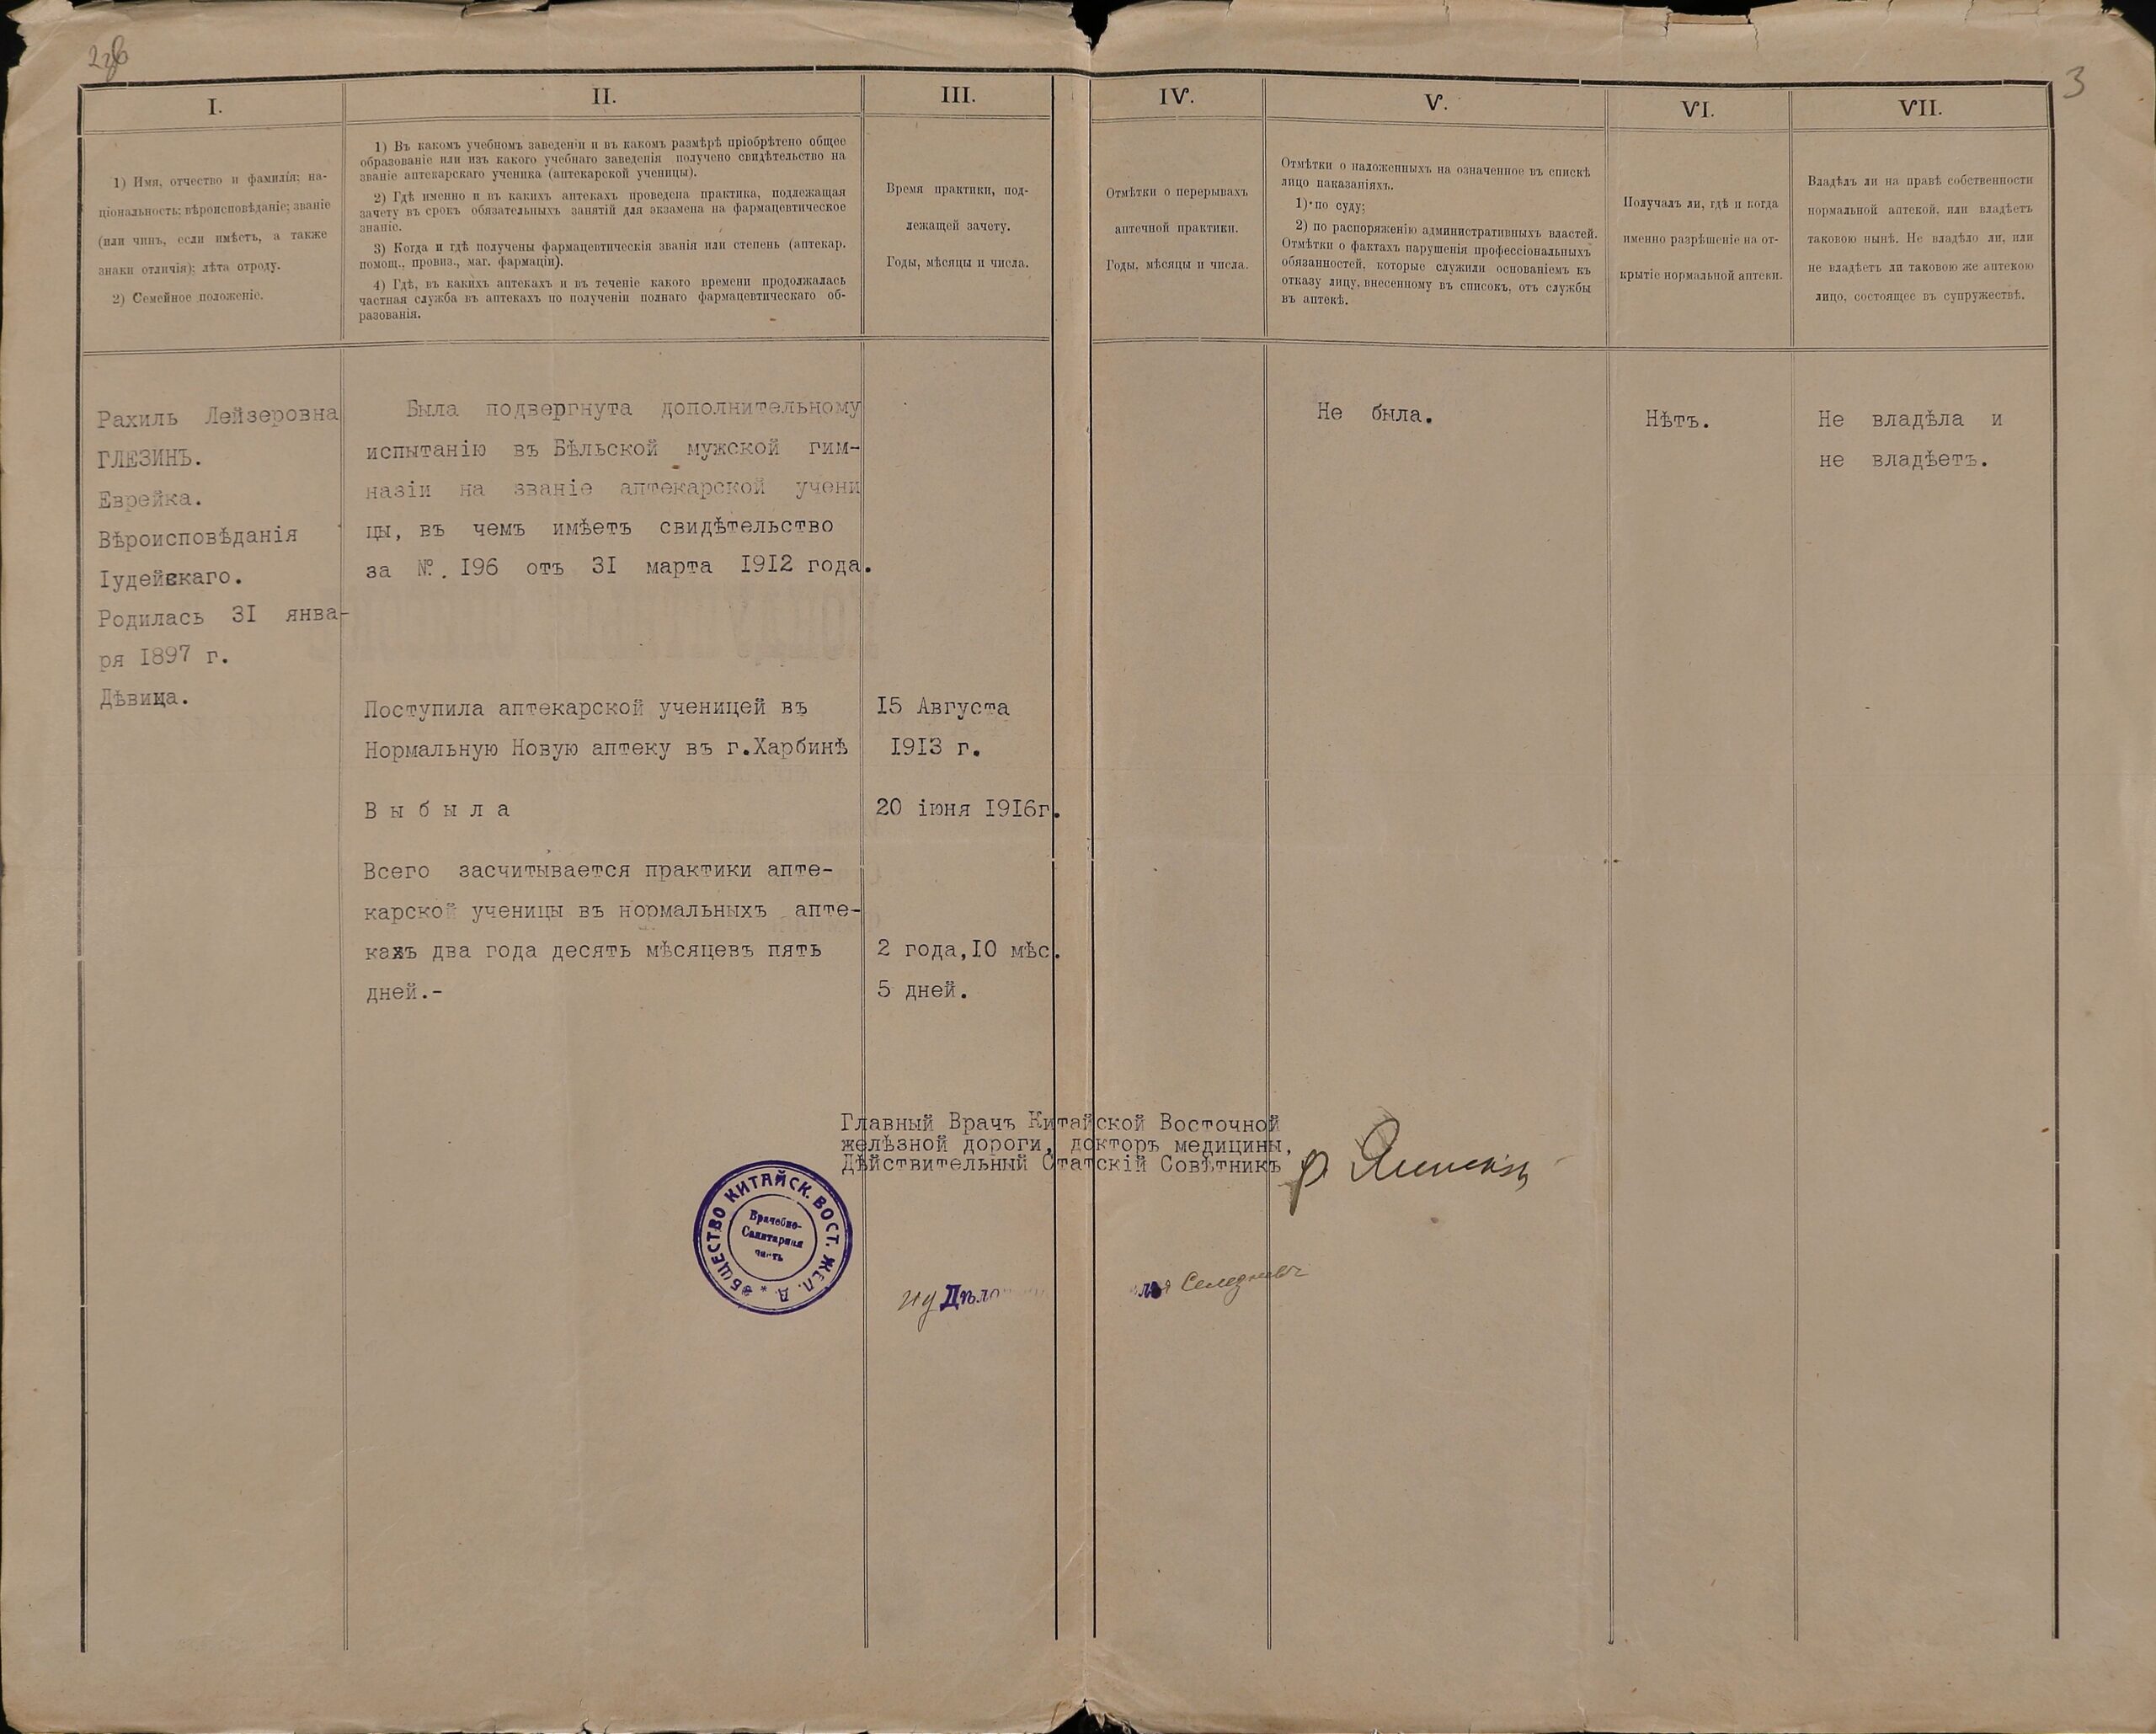 3
I.
II.
III.
IV.
V.
VI.
VII.
1) Имя, отчество и фамилія; на-
ціональность; вѣроисповѣданіе; званіе
(или чинъ, если имѣетъ, а также
знаки отличія); лѣта отроду.
2) Семейное положеніе.
1) Въ какомъ учебномъ заведеніи и въ какомъ размѣрѣ пріобрѣтено общее
образованіе или изъ какого учебнаго заведенія получено свидѣтельство на
званіе аптекарскаго ученика (аптекарской ученицы).
2) Гдѣ именно и въ какихъ аптекахъ проведена практика, подлежащая
зачету въ срокъ обязательныхъ занятій для экзамена на фармацевтическое
званіе.
3) Когда и гдѣ получены фармацевтическія званія или степень (аптекар.
помощ., провиз., маг. фармаціи).
4) Гдѣ, въ какихъ аптекахъ и въ теченіе какого времени продолжалась
частная служба въ аптекахъ по полученіи полнаго фармацевтическаго об-
разованія.
Время практики, под-
лежащей зачету.
Годы, мѣсяцы и числа.
Отмѣтки о перерывахъ
аптечной практики.
Годы, мѣсяцы и числа.
Отмѣтки о наложенныхъ на означенное въ спискѣ
лицо наказаніяхъ.
1) по суду;
2) по распоряженію административныхъ властей.
Отмѣтки о фактахъ нарушенія профессіональныхъ
обязанностей, которые служили основаніемъ къ
отказу лицу, внесенному въ списокъ, отъ службы
въ аптекѣ.
Получалъ ли, гдѣ и когда
именно разрѣшеніе на от-
крытіе нормальной аптеки.
Владѣлъ ли на правѣ собственности
нормальной аптекой, или владѣетъ
таковою нынѣ. Не владѣло ли, или
не владѣетъ ли таковою же аптекою
лицо, состоящее въ супружествѣ.
Рахиль Лейзеровна
ГЛЕЗИНЪ.
Еврейка.
Вѣроисповѣданія
Іудейскаго.
Родилась 3I янва-
ря I897 г.
Дѣвица.
Была подвергнута дополнительному
испытанію въ Бѣльской мужской гим-
назіи на званіе аптекарской учени
цы, въ чемъ имѣетъ свидѣтельство
за №. I96 отъ 3I марта I9I2 года.
Поступила аптекарской ученицей въ
Нормальную Новую аптеку въ г.Харбинѣ
В ы б ы л а
Всего засчитывается практики апте-
карской ученицы въ нормальныхъ апте-
кахъ два года десять мѣсяцевъ пять
дней.-
I5 Августа
I9I3 г.
20 іюня I9I6г.
2 года,I0 мѣс.
5 дней.
Не была.
Нѣтъ.
Не владѣла и
не владѣетъ.
Главный Врачъ Китайской Восточной
желѣзной дороги, докторъ медицины,
Дѣйствительный Статскій Совѣтникъ
ОБЩЕСТВО КИТАЙСК. ВОСТ. ЖЕЛ. Д. *
Врачебно-
Санитарная
часть